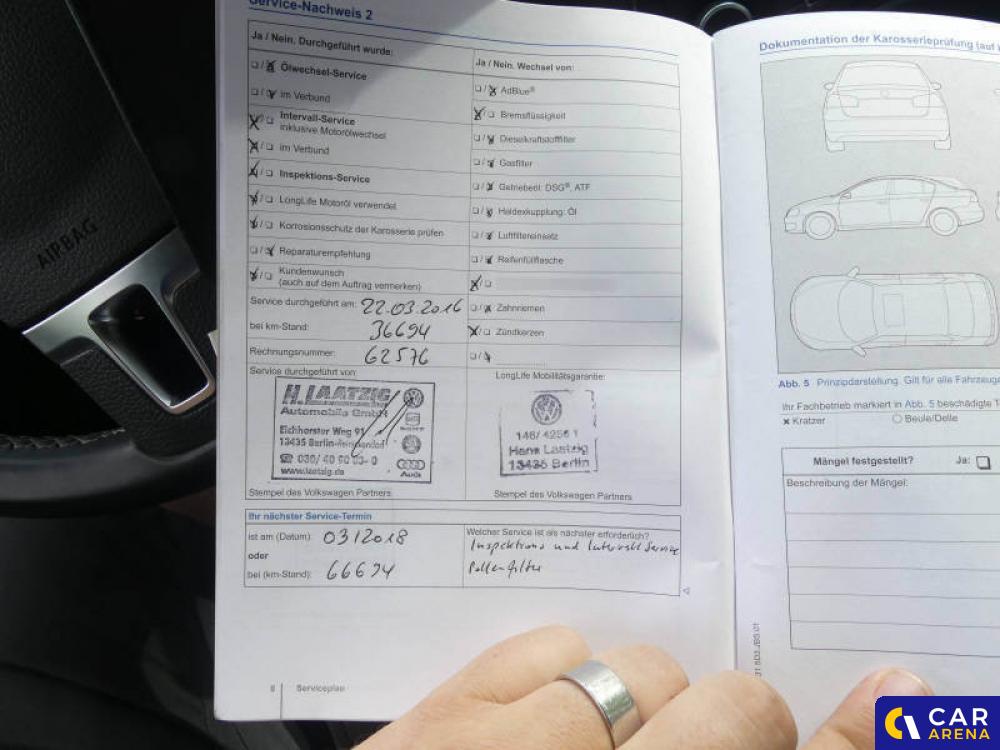 Service-Nachweis 2
Ja / Nein. Durchgeführt wurde:
Ölwechsel-Service
im Verbund
Intervall-Service
inklusive Motorölwechsel
im Verbund
Inspektions-Service
LongLife Motoröl verwendet
Korrosionsschutz der Karosserie prüfen
Reparaturempfehlung
Kundenwunsch
(auch auf dem Auftrag vermerken)
Service durchgeführt am: 22.03.2016
bei km-Stand: 36694
Rechnungsnummer: 62576
Ja / Nein. Wechsel von:
AdBlue®
Bremsflüssigkeit
Dieselkraftstofffilter
Gasfilter
Getriebeöl: DSG®, ATF
Haldexkupplung: Öl
Luftfiltereinsatz
Reifenfüllflasche
Zahnriemen
Zündkerzen
Service durchgeführt von:
H. LAATZIG
Automobile GmbH
Eichhorster Weg 91
13435 Berlin-Reinickendorf
☎ 030/ 40 90 03- 0
www.laatzig.de
Audi
Stempel des Volkswagen Partners
LongLife Mobilitätsgarantie:
146/ 4256 1
Hans Laatzig
13435 Berlin
Stempel des Volkswagen Partners
Ihr nächster Service-Termin
ist am (Datum): 03/2018
oder
bei (km-Stand): 66694
Welcher Service ist als nächster erforderlich?
Inspektions und Intervall Service
Pollenfilter
8 Serviceplan
Dokumentation der Karosserieprüfung (auf
Abb. 5 Prinzipdarstellung. Gilt für alle Fahrzeuge
Ihr Fachbetrieb markiert in Abb. 5 beschädigte
× Kratzer ○ Beule/Delle
Mängel festgestellt? Ja:
Beschreibung der Mängel:
AIRBAG
CAR
ARENA